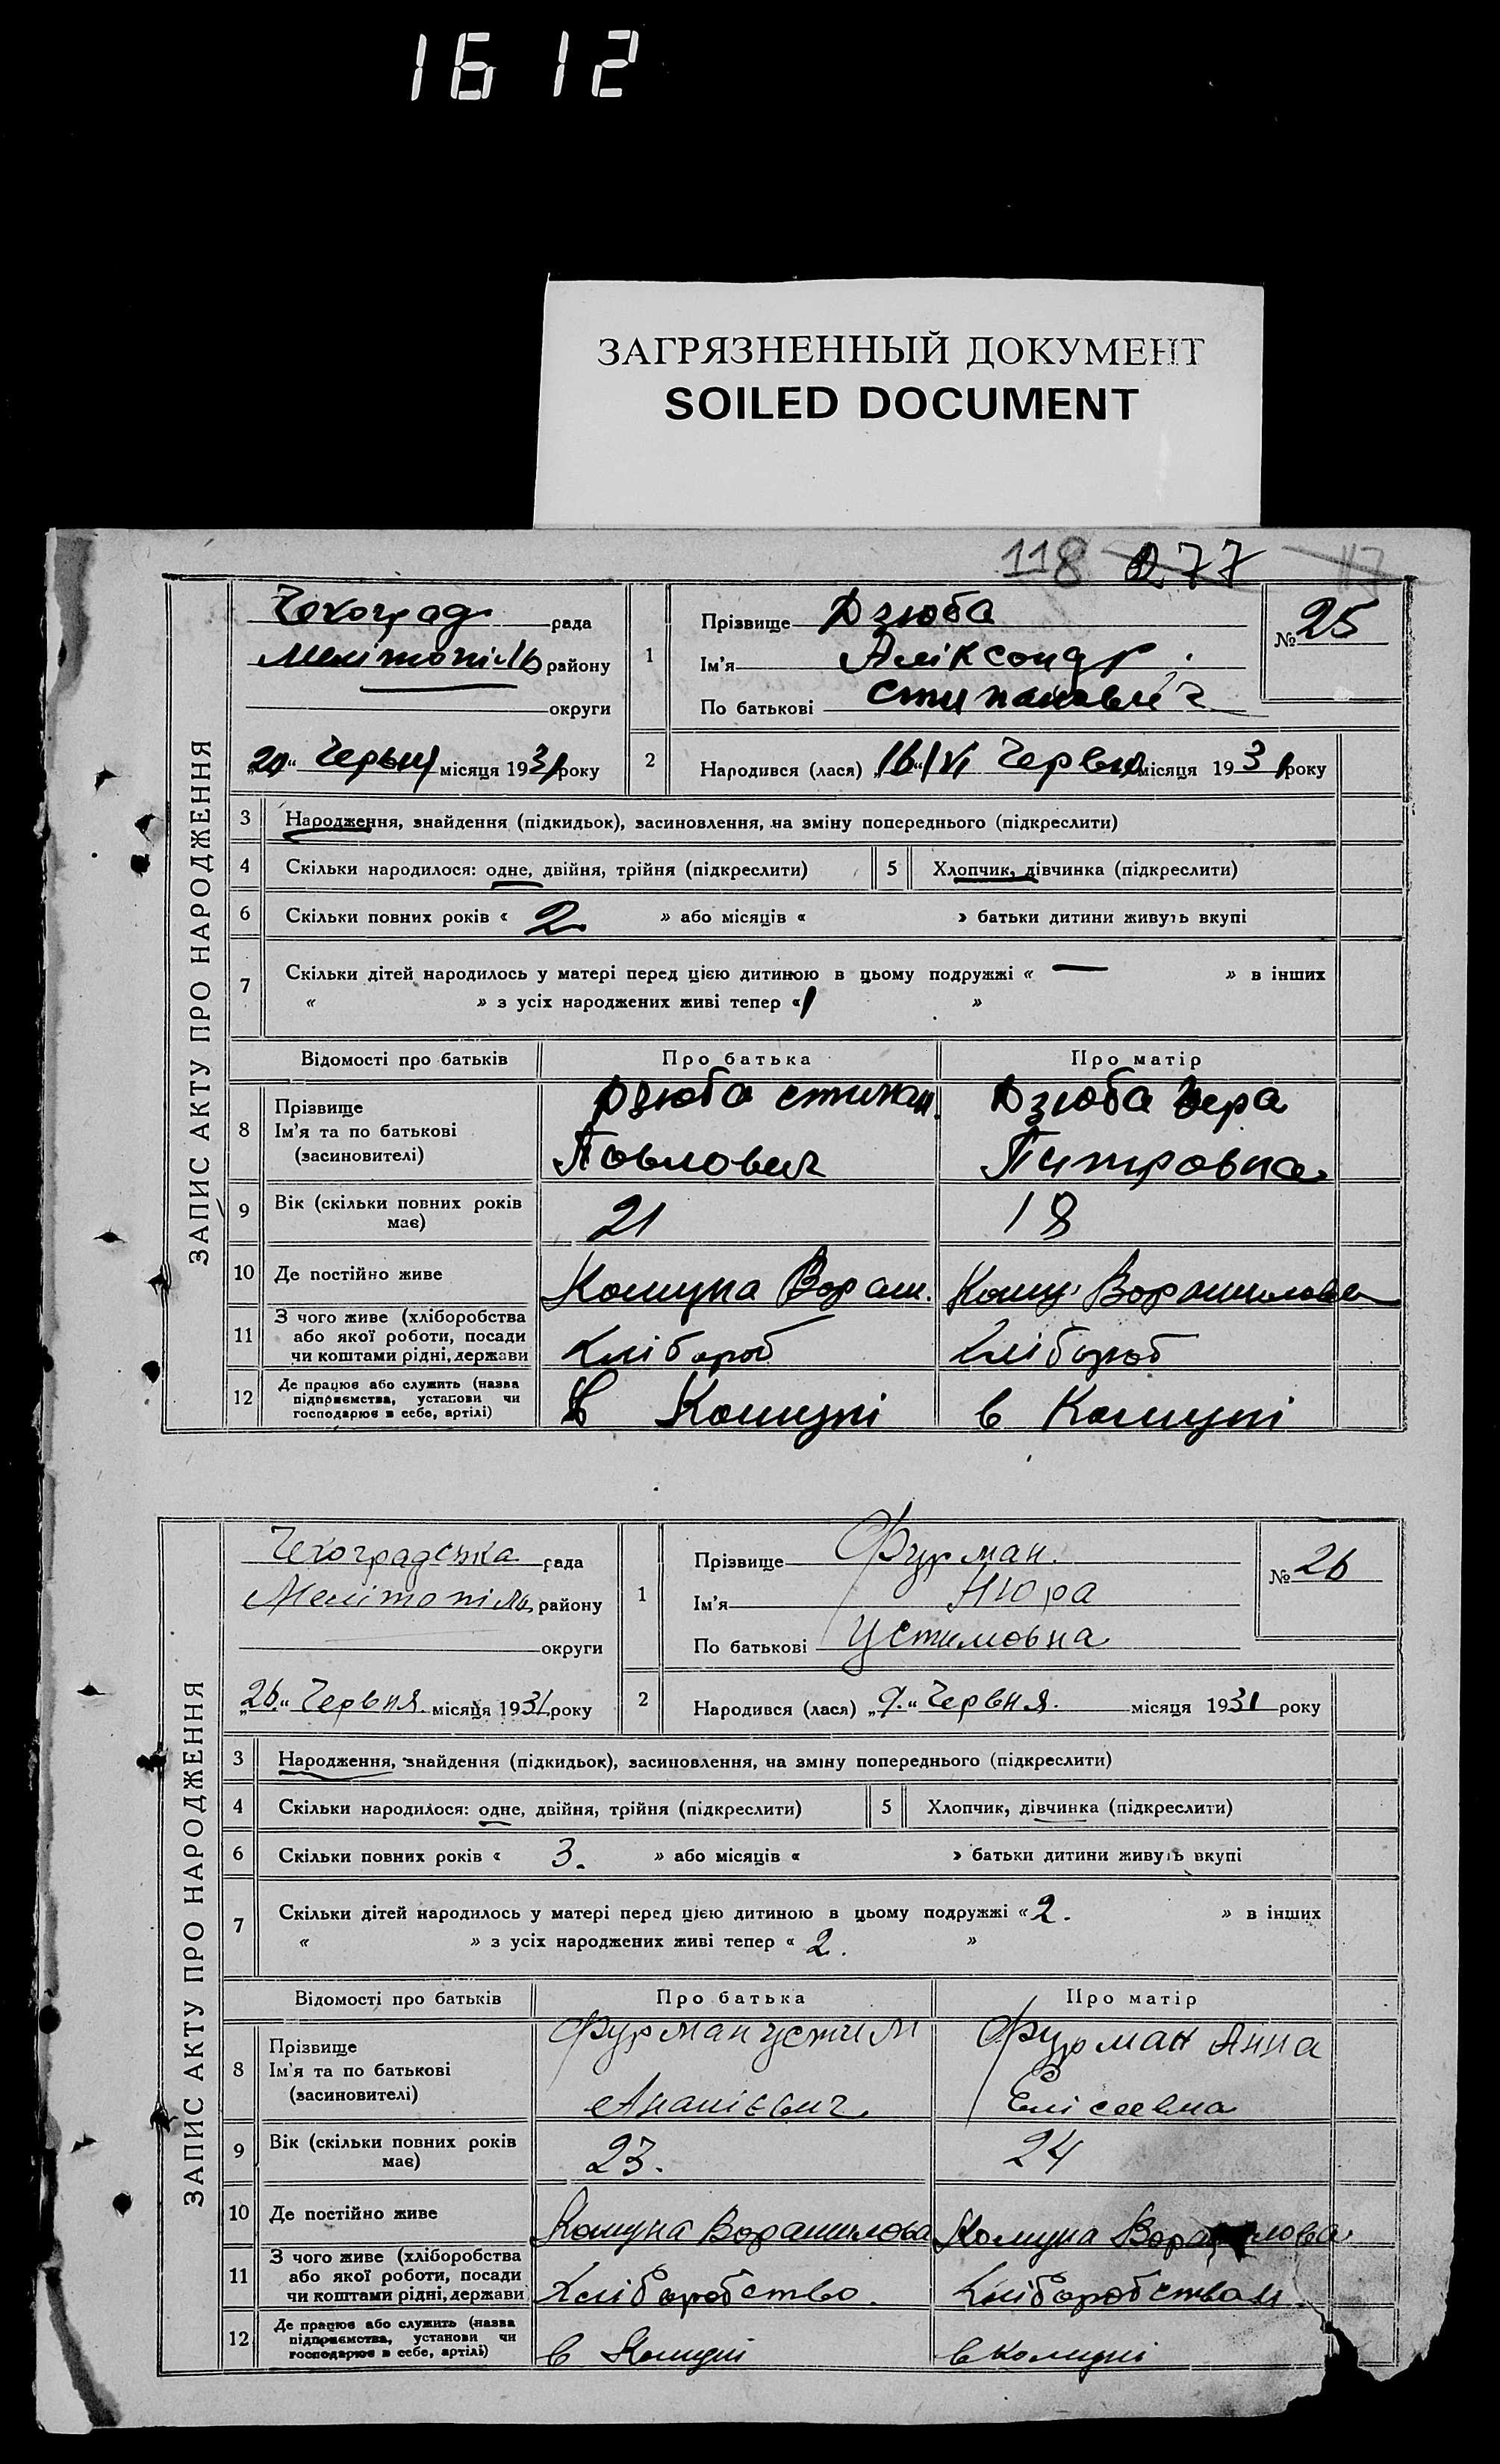 16 12
ЗАГРЯЗНЕННЫЙ ДОКУМЕНТ
SOILED DOCUMENT
118 277 117
ЗАПИС АКТУ ПРО НАРОДЖЕННЯ
Чехоград рада
Мелітопіль району
округи
„20“ Червня місяця 1931 року
1 Прізвище Дзюба
Ім'я Аліксондр
По батькові Стипанович
№ 25
2 Народився (лася) „16“/VI Червня місяця 1931 року
3 Народження, знайдення (підкидьок), засиновлення, на зміну попереднього (підкреслити)
4 Скільки народилося: одне, двійня, трійня (підкреслити) 5 Хлопчик, дівчинка (підкреслити)
6 Скільки повних років « 2 » або місяців « » батьки дитини живуть вкупі
7 Скільки дітей народилось у матері перед цією дитиною в цьому подружжі « — » в інших
« » з усіх народжених живі тепер « 1 »
Відомості про батьків Про батька Про матір
8 Прізвище Ім'я та по батькові (засиновителі)
Дзюба Стипан Павлович
Дзюба Вера Питровна
9 Вік (скільки повних років має) 21 18
10 Де постійно живе Комуна Вораш. Кому. Ворашилова
11 З чого живе (хліборобства або якої роботи, посади чи коштами рідні, держави Хлібороб Хлібороб
12 Де працює або служить (назва підприємства, установи чи господарює в себе, артілі) в Комуні в Комуні
ЗАПИС АКТУ ПРО НАРОДЖЕННЯ
Чехоградська рада
Мелітопіль району
округи
„26“ Червня місяця 1931 року
1 Прізвище Фурман.
Ім'я Нюра
По батькові Устимовна
№ 26
2 Народився (лася) „9.“ Червня. місяця 1931 року
3 Народження, знайдення (підкидьок), засиновлення, на зміну попереднього (підкреслити)
4 Скільки народилося: одне, двійня, трійня (підкреслити) 5 Хлопчик, дівчинка (підкреслити)
6 Скільки повних років « 3. » або місяців « » батьки дитини живуть вкупі
7 Скільки дітей народилось у матері перед цією дитиною в цьому подружжі « 2. » в інших
« » з усіх народжених живі тепер « 2. »
Відомості про батьків Про батька Про матір
8 Прізвище Ім'я та по батькові (засиновителі)
Фурман Устим Ананієвич
Фурман Анна Елісеевна
9 Вік (скільки повних років має) 23. 24
10 Де постійно живе Комуна Ворашилова Комуна Ворашилова
11 З чого живе (хліборобства або якої роботи, посади чи коштами рідні, держави Хліборобство. Хліборобствам.
12 Де працює або служить (назва підприємства, установи чи господарює в себе, артілі) в Комуні в Комуні